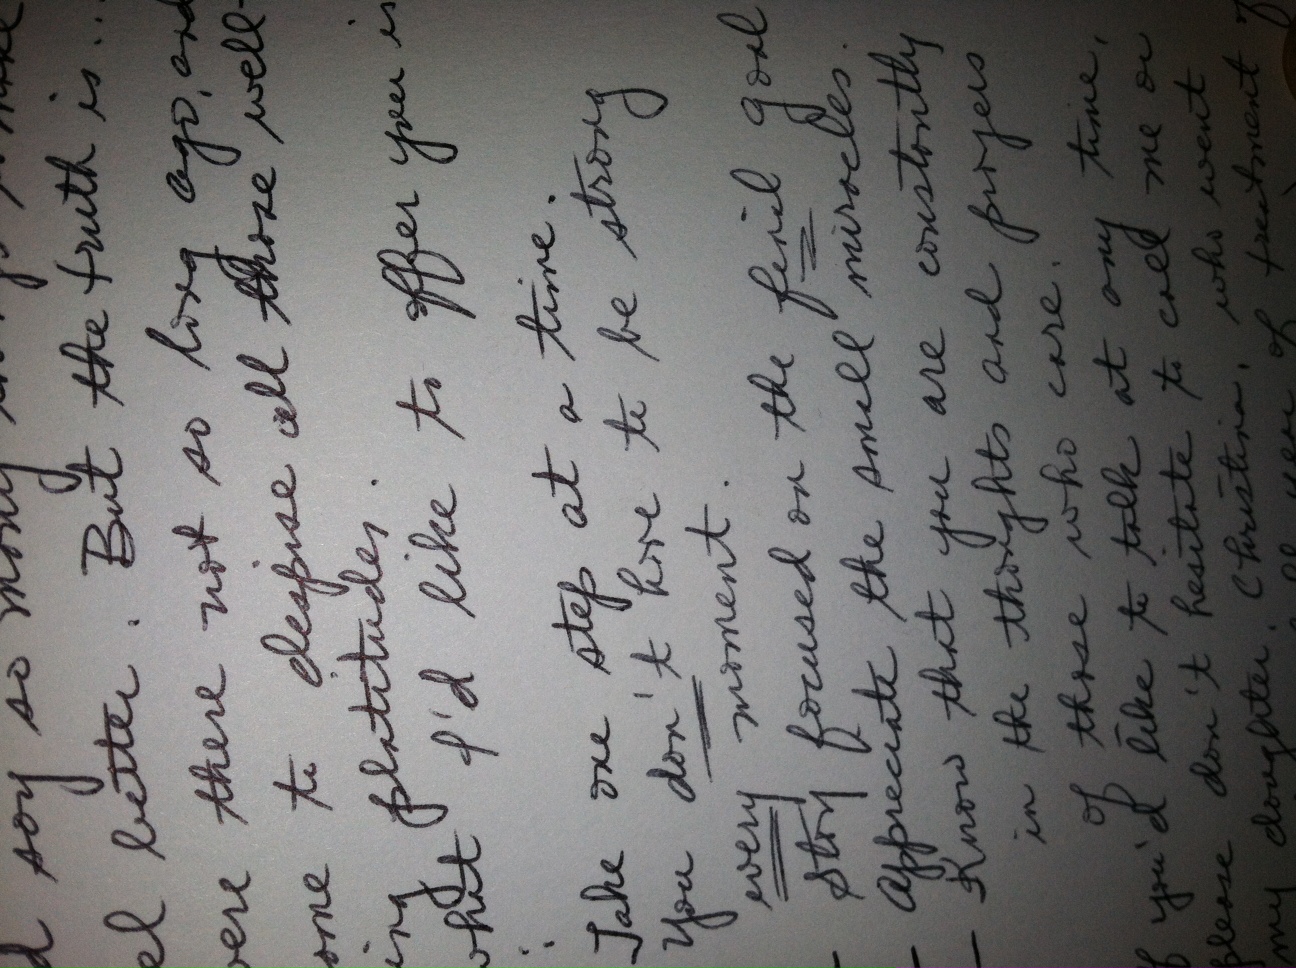 d say so many
el better. But the truth is...
were there not so long ago, and
ome to despise all those well-
ing platitudes.
what I'd like to offer you is
:
Take one step at a time.
You don't have to be strong
every moment.
- Stay focused on the final goal
- Appreciate the small miracles.
- Know that you are constantly
in the thoughts and prayers
of those who care.
f you'd like to talk at any time,
please don't hesitate to call me or
my daughter, Christina, who went
year of treatment